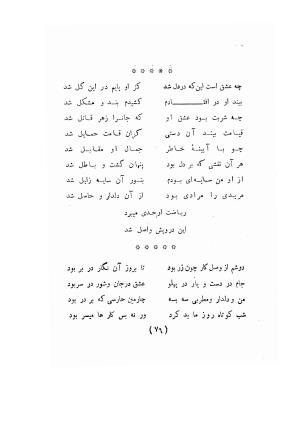 چه عشق است این که در دل شد کز او پایم در این گل شد
بیند او در افتادم کشیدم بند و مشکل شد
چه شربت بود عشق او که جانرا زهر قاتل شد
قیامت بیند آن دستی کزان قامت حمایل شد
چو با آیینهٔ خاطر جمال او مقابل شد
هر آن نقشی که بر دل بود پنهان گشت و باطل شد
از او من سایه‌ای بودم بنور آن سایه زایل شد
مریدی را مرادی بود از آن دلدار و حاصل شد
ریاضت اوحدی میبرد
این درویش واصل شد
دوشم از وصل کار چون زر بود تا بروز آن نگار در بر بود
جام در دست و یار در پهلو عشق در جان و شور در سر بود
من و دلدار و مطربی سه بسه چارمین حارسی که بر در بود
شب کوتاه روز ما بد کرد ور نه بس کار ها میسر بود
(۷۶)